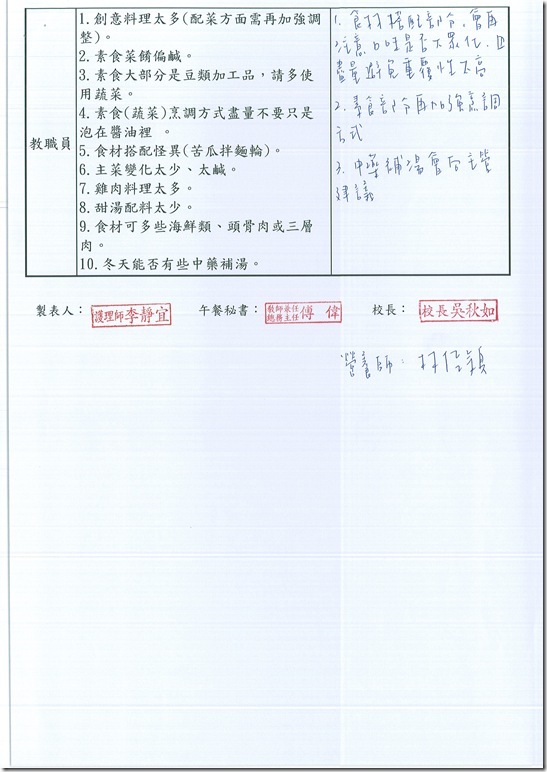 教職員
1.創意料理太多(配菜方面需再加強調
整)。
2.素食菜餚偏鹹。
3.素食大部分是豆類加工品，請多使
用蔬菜。
4.素食(蔬菜)烹調方式盡量不要只是
泡在醬油裡 。
5.食材搭配怪異(苦瓜拌麵輪)。
6.主菜變化太少、太鹹。
7.雞肉料理太多。
8.甜湯配料太少。
9.食材可多些海鮮類、頭骨肉或三層
肉。
10.冬天能否有些中藥補湯。
1. 食材搭配部份,會再
注意口味是否大眾化,且
盡量避免重覆性太高
2. 素食部份再加強烹調
方式
3. 中藥補湯會向主管
建議
製表人： 護理師李靜宜 午餐秘書： 教師兼任總務主任 傅偉 校長： 校長吳秋如
營養師：林